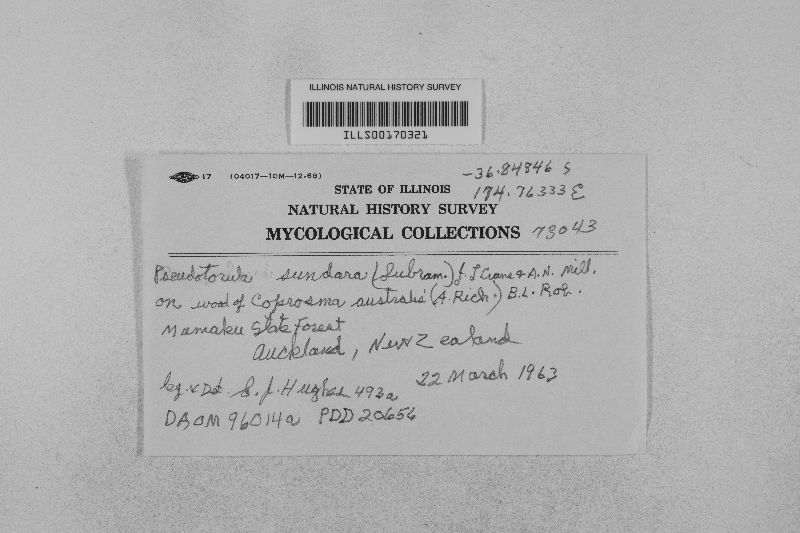 ILLINOIS NATURAL HISTORY SURVEY
ILLS00170321
17 (04017—10M—12-68)
-36.84846 S
174.76333 E
STATE OF ILLINOIS
NATURAL HISTORY SURVEY
MYCOLOGICAL COLLECTIONS 73043
Pseudotorula sundara (Subram.) J. L Crane & A.N. Mill.
on wood of Coprosma australis (A. Rich.) B.L. Rob.
Mamaku State Forest
Auckland, New Zealand
leg. & Det. S. J. Hughes 493a 22 March 1963
DAOM 96014a PDD 20656